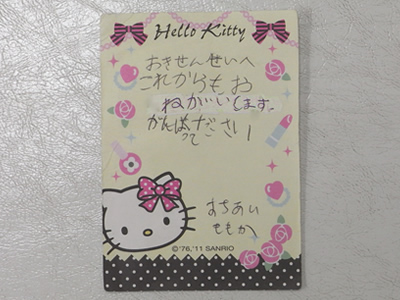 Hello Kitty
おきせんせいへ
これからもお
ねがいします。
がんばってください
まちあい
ももか
©'76,'11 SANRIO